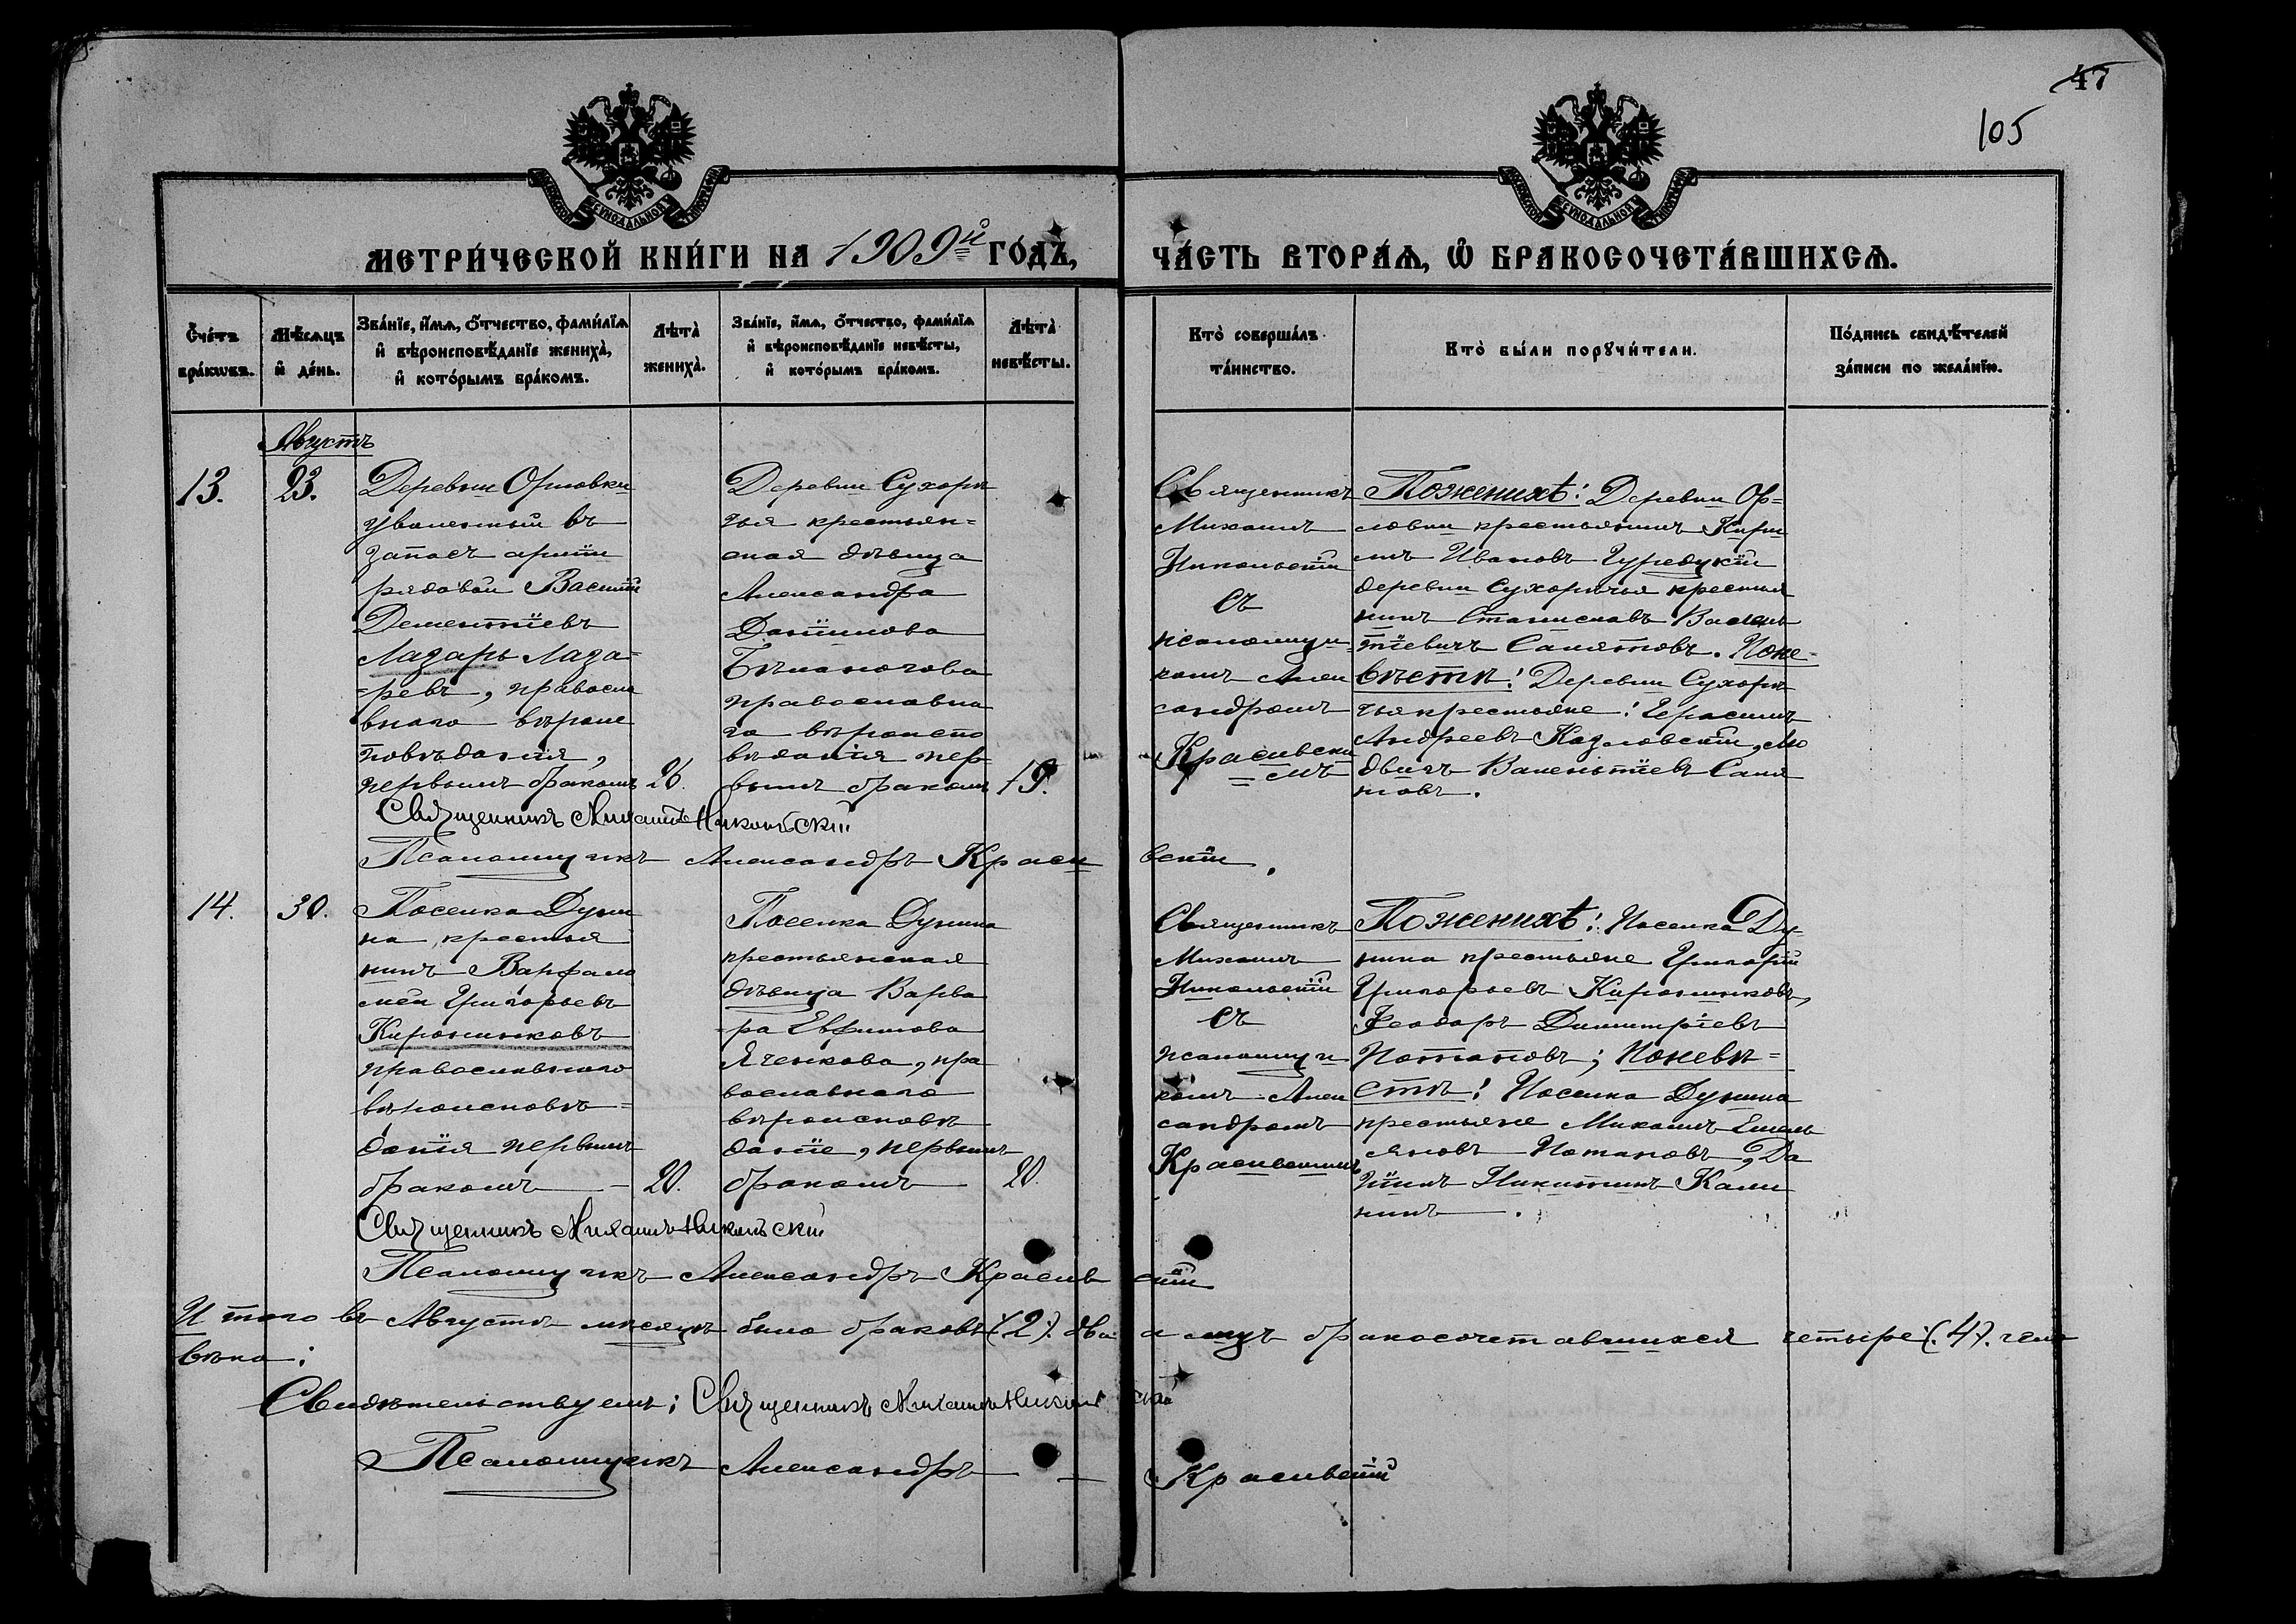 47
105
МЕТРИ́ЧЕСКОЙ КНИ́ГИ НА 1909й ГО́ДЪ,
ЧА́СТЬ ВТОРА́Ѧ, Ѡ҆ БРАКОСОЧЕТА́ВШИХСѦ.
Сче́тъ бра́кѡвъ.
Мѣ́сѧцъ и҆ де́нь.
Зва́нїе, и҆́мѧ, ѻ҆́тчество, фами́лїѧ
и҆ вѣроисповѣ́данїе жениха̀,
и҆ кото́рымъ бра́комъ.
Лѣта̀ жениха̀.
Зва́нїе, и҆́мѧ, ѻ҆́тчество, фами́лїѧ
и҆ вѣроисповѣ́данїе невѣ́сты,
и҆ кото́рымъ бра́комъ.
Лѣта̀ невѣ́сты.
Кто̀ соверша́лъ
та́инство.
Кто̀ бы́ли порꙋчи́тели.
По́дпись свидѣ́телей
за́писи по жела́нїю.
Августъ
13.
23.
Деревни Орловки
уволенный въ
запасъ арміи
рядовой Василій
Дементіевъ
Лазарь Лаза=
=ревъ, правосла
внаго вѣроис
повѣданія,
первымъ бракомъ
26.
Деревни Сухорѣ
чья крестьян=
ская дѣвица
Александра
Даніилова
православна
го вѣроиспо
вѣданія пер-
вымъ бракомъ
19.
Священникъ
Михаилъ
Никольскій
съ
псаломщи=
комъ Алек
сандромъ
Красивски
=мъ
По женихѣ: Деревни Ор=
ловки крестьянинъ Кири
лъ Ивановъ
деревни Сухорѣчья крестья
нинъ Станиславъ Вален
тіевичъ Саматовъ. По не=
вѣстѣ: Деревни Сухорѣ
чья крестьяне: Герасимъ
Андреевъ Казловскій, Лю
двигъ Валентіевъ Сама
товъ.
Священникъ Михаилъ Никольскій
Псаломщикъ Александръ Красивскій.
14.
30.
Поселка Дуни
на, крестья
нинъ Варфоло
мей Григорьевъ
Кирюшниковъ
православнаго
вѣроисповѣ=
данія первымъ
бракомъ
20.
Поселка Дунина
крестьянская
дѣвица Варва
=ра Евфимова
Яченкова, пра
вославнаго
вѣроисповѣ
даніе, первымъ
бракомъ
20.
Священникъ
Михаилъ
Никольскій
съ
псаломщи
комъ Алек
сандромъ
Красивскимъ
По женихѣ: Поселка Ду-
нина крестьяне Григорій
Григорьевъ Кирюшниковъ,
Ѳеодоръ Димитріевъ
Потаповъ; По невѣ=
стѣ: Поселка Дунина
крестьяне Михаилъ Емель
яновъ Потаповъ, Да
ніилъ Никитинъ Кали
нинъ.
Священникъ Михаилъ Никольскій
Псаломщикъ Александръ Красивскій
Итого въ Августѣ мѣсяцѣ было браковъ (2). два а лицъ бракосочетавшихся четыре (.4). чело
вѣка:
Свидѣтельствуемъ: Священникъ Михаилъ Никольскій
Псаломщикъ Александръ Красивскій